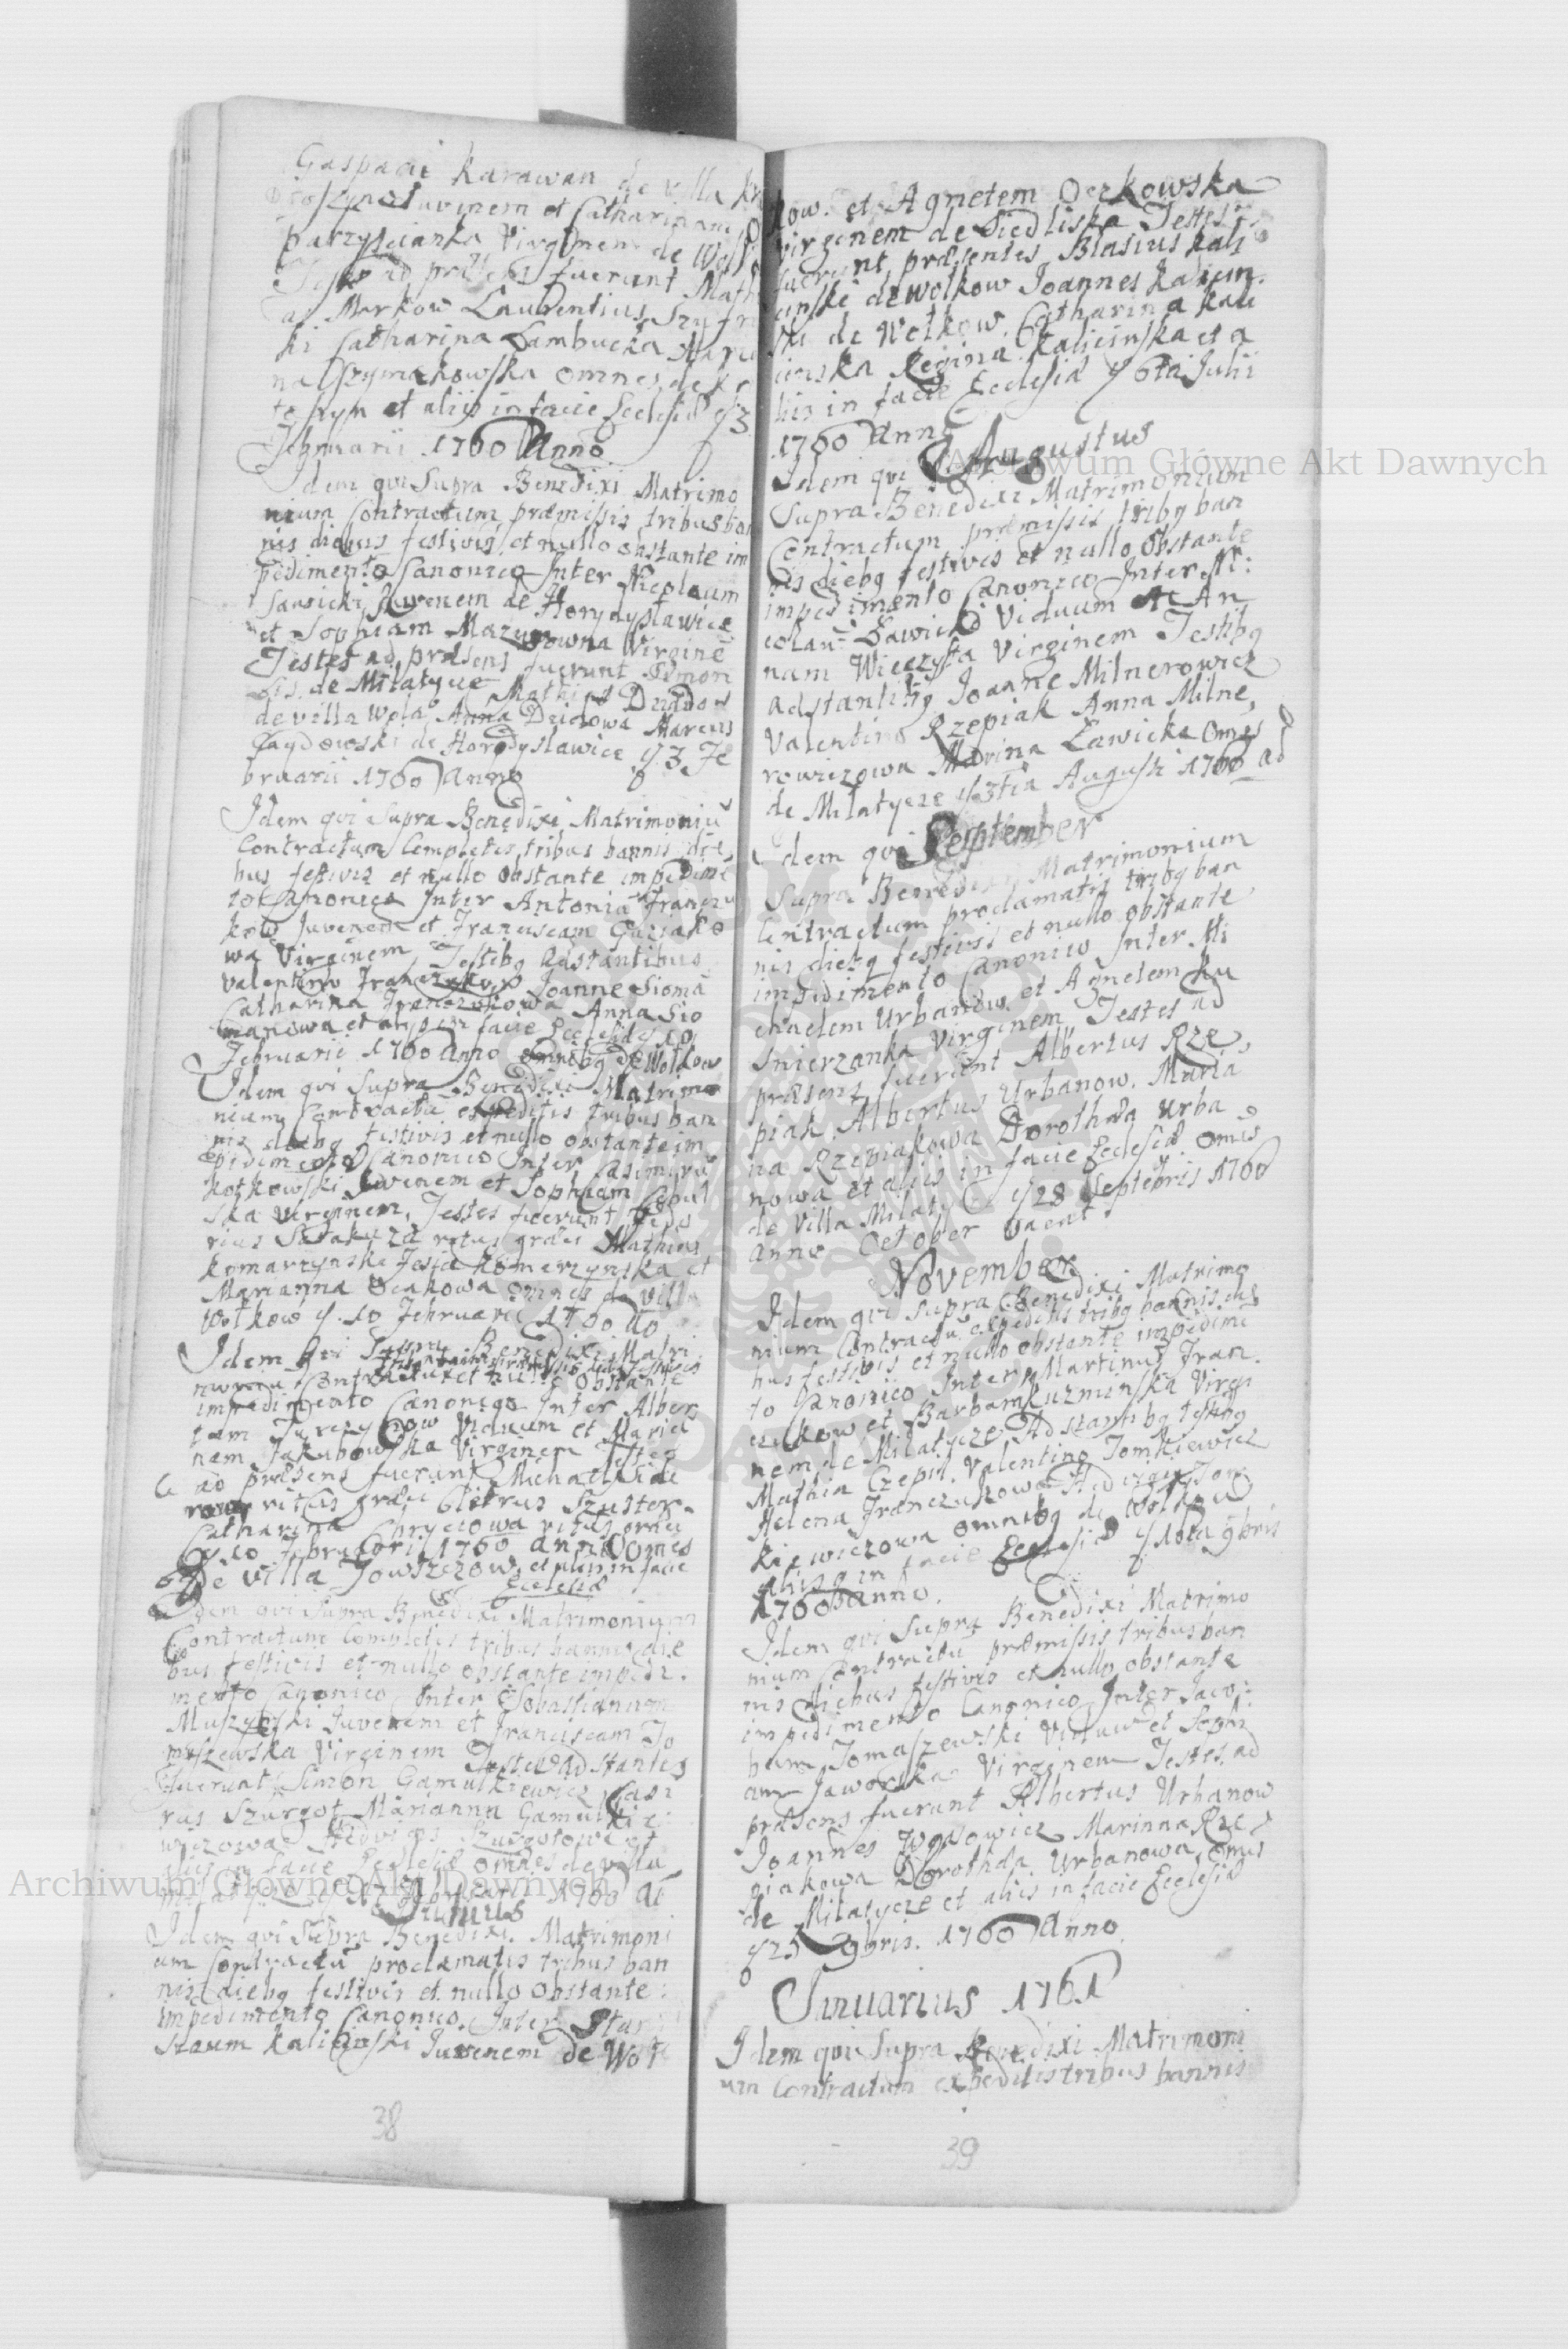 Gaspari Karawan de villa Kr
toszyn Juvenem et Catharinam
Parzyscianka Virginem de
Testes ad præsens fuerunt Math
Markow Laurentius Szyfr
ki Catharina Dambucka Maria
na Szymakowska omnes de Kr
toszyn et aliis in facie Ecclesiæ 3
Februarii 1760 Anno
Idem qui Supra Benedixi Matrimo
nium Contractum præmissis tribus ban
nis diebus festivis et nullo obstante im
pedimento Canonico Inter Nicolaum
Sawicki Juvenem de Horodyslawice
et Sophiam Mazurowna Virginē
Testes ad præsens fuerunt Simon
de Milatycze Mathias Dzidow
de villa Wola Anna Dzidowa Marcus
Gaydowski de Horodyslawice 3 Fe
bruarii 1760 Anno
Idem qui Supra Benedixi Matrimoniū
Contractum Completis tribus bannis die
bus festivis et nullo obstante impedimē
to Canonico Inter Antoniū Franczu
kow Juvenem et Franciscam Guziako
wa Virginem Testibq adstantibus
Valentino Franczukow Joanne Sioma
Catharina Franczukowa Anna Sio
manowa et aliis in facie Ecclesiæ 10
Februarii 1760 Anno omnibq de Wolkow
Idem qui Supra Benedixi Matrimo
nium Contractū expeditis tribus ban
nis diebq festivis et nullo obstante im
pedimento Canonico Inter Casimirū
Kotkowski Juvenem et Sophiam Cebul
ska Virginem, Testes fuerunt
ritus græci Mathias
Komarzynski Tesia Komerzynska et
Marianna omnes de villa
Wolkow 10 Februarii 1760
Idem qui Supra Benedixi Matri
monium Contractum et nullo obstante
impedimento Canonico Inter Alber
tum Jurczynow Viduum et Maria
nam Jakubowska Virginem Testes
ad præsens fuerunt Michael
ritus græci Petrus Szuster
Catharina Chryciowa ritus græci
10 Februarii 1760 Anno Omēs
De villa Dowszezow et aliis in facie
Ecclesiæ
Idem qui Supra Benedixi Matrimonium
Contractum Completis tribus bannis die
bus festivis et nullo obstante impedi
mento Canonico Inter Sobastianum
Muszynski Juvenem et Franciscam To
maszewska Virginem Testes adstantes
fuerunt Simon Gamulkiewicz Casi
rus Szurgot Marianna Gamulkie
wiczowa Hedvigis Szurgotowa et
aliis in facie Ecclesiæ omnes de villa
Februarii 1760
Junius
Idem qui Supra Benedixi Matrimoni
um Contractū proclamatis tribus ban
nis diebq festivis et nullo obstante
impedimento Canonico Inter Stani
slaum Kalicinski Juvenem de Wol
38
kow. et Agnetem Derkowska
virginem de Siedliska Testes
fuerunt præsentes Blasius Kali
cinski de Wolkow Joannes Kalicin
ski de Wolkow. Catharina Kali
cinska Regina Kalicinska et a
liis in facie Ecclesiæ 6ta Julii
1760 Anno
Augustus
Idem qui
Supra Benedixi Matrimonium
Contractum præmissis tribq ban
nis diebq festivis et nullo obstante
impedimento Canonico Inter Ni:
colaū Sawicki Viduum et An
nam Wieczysta Virginem Testibq
adstantibq Joanne Milnerowicz
Valentino Rzepiak Anna Milne
rowiczowa Marina Lawicka Omēs
de Milatycze 3tia Augusti 1760 ad
September
Idem qui
Supra Benedixi Matrimonium
Contractum proclamatis tribq ban
nis diebq festivis et nullo obstante
impedimento Canonico Inter Mi
chaelem Urbanow et Agnetem Ku
snierzanka Virginem Testes ad
præsens fuerunt Albertus Rze
piak Albertus Urbanow. Maria
na Rzepiakowa Dorothæa Urba
nowa et aliis in facie Ecclesiæ omēs
de Villa Milaty 28 Septebris 1760
Anno October vacat
November
Idem qui Supra Benedixi Matrimo
nium Contractū expeditis tribq bannis die
bus festivis et nullo obstante impedimē
to Canonico Inter Martinum Fran
czukow et Barbam Kuzminska Virgi
nem de Milatycze Adstantibq testibq
Mathia Czepil. Valentino Tomkiewicz
Helena Franczukowa Hedvigis Tom
kiewiczowa omnibq de Wolkow
aliisq in facie Ecclesiæ 10ta 9bris
1760 Anno.
Idem qui Supra Benedixi Matrimo
nium Contractū præmissis tribus ban
nis diebus festivis et nullo obstante
impedimento Canonico Inter Jaco:
bum Tomaszewski Viduum et Sophi
am Jaworska Virginem Testes ad
præsens fuerunt Albertus Urbanow
Joannes Marinna Rze
piakowa Dorothæa Urbanowa, Omēs
de Milatycze et aliis in facie Ecclesiæ
25 9bris. 1760 Anno.
Januarius 1761
Idem qui Supra Benedixi Matrimoni
um Contractum expeditis tribus bannis
39
Archiwum Główne Akt Dawnych
Archiwum Główne Akt Dawnych